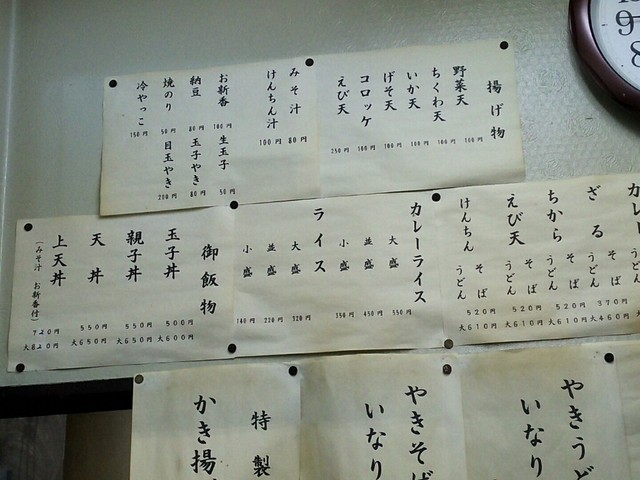 揚げ物
野菜天 100円
ちくわ天 100円
いか天 100円
げそ天 100円
コロッケ 100円
えび天 250円
みそ汁 80円
けんちん汁 100円
お新香 100円
生玉子 50円
納豆 80円
玉子やき 80円
焼のり 50円
目玉やき 200円
冷やっこ 150円
カレー
うどん
ざる
そば
うどん
370円
大460円
ちから
そば
うどん
520円
大610円
えび天
そば
うどん
520円
大610円
けんちん
うどん
520円
大610円
カレーライス
大盛 550円
並盛 450円
小盛 350円
ライス
大盛 320円
並盛 220円
小盛 140円
御飯物
玉子丼 500円
大600円
親子丼 550円
大650円
天丼 550円
大650円
上天丼 720円
大820円
(みそ汁 お新香付)
やきうど
いなり
やきそば
いなり
特製
かき揚げ
9
8